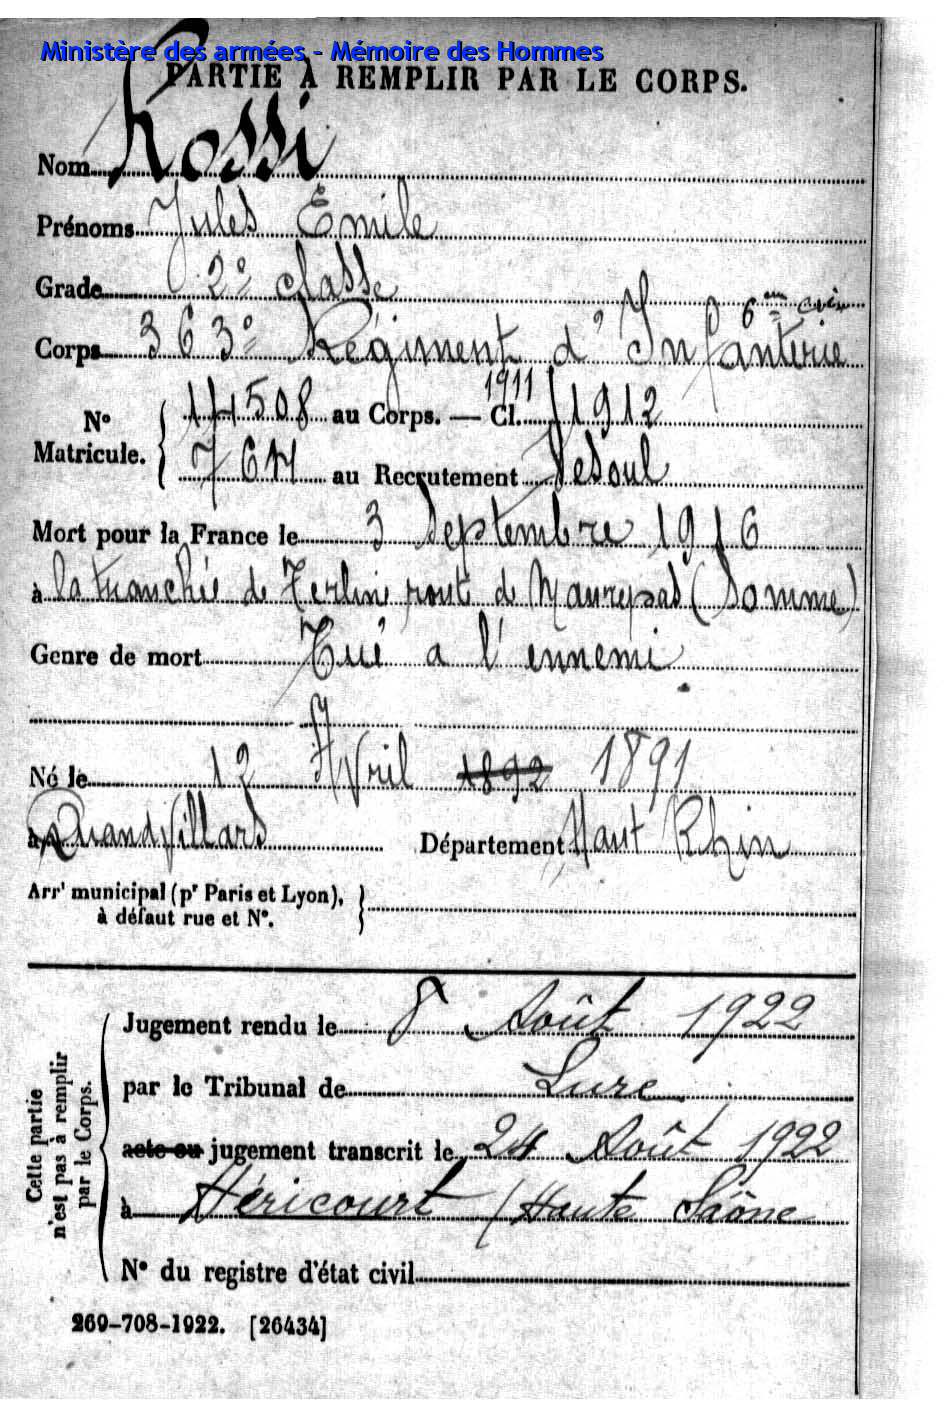 Ministère des armées - Mémoire des Hommes
PARTIE À REMPLIR PAR LE CORPS.
Nom Rossi
Prénoms Jules Emile
Grade 2e classe
6em cie
Corps 363e Régiment d'Infanterie
1911
N° Matricule. { 14508 au Corps. — Cl. 1912
764 au Recrutement Vesoul
Mort pour la France le 3 Septembre 1916
à la tranchée de Terline rout de Maurepas (Somme)
Genre de mort Tué a l'ennemi
Né le 12 Avril 1892 1891
à Quandvillars Département Haut Rhin
Arrt municipal (pr Paris et Lyon), }
à défaut rue et N°.
Cette partie
n'est pas à remplir
par le Corps.
Jugement rendu le 8 Août 1922
par le Tribunal de Lure
acte ou jugement transcrit le 24 Août 1922
à Héricourt (Haute Saône
N° du registre d'état civil
269-708-1922. [26434]